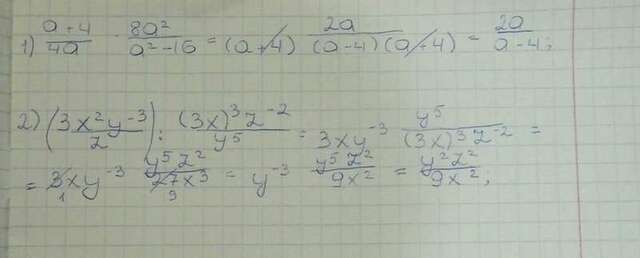 1) (a+4)/(4a) · (8a²)/(a²-16) = (a+4) (2a)/((a-4)(a+4)) = (2a)/(a-4);
2) ((3x²y⁻³)/z) : ((3x)³z⁻²)/(y⁵) = 3xy⁻³ (y⁵)/((3x)³z⁻²) =
= 3xy⁻³ (y⁵z²)/(27x³) = y⁻³ (y⁵z²)/(9x²) = (y²z²)/(9x²);